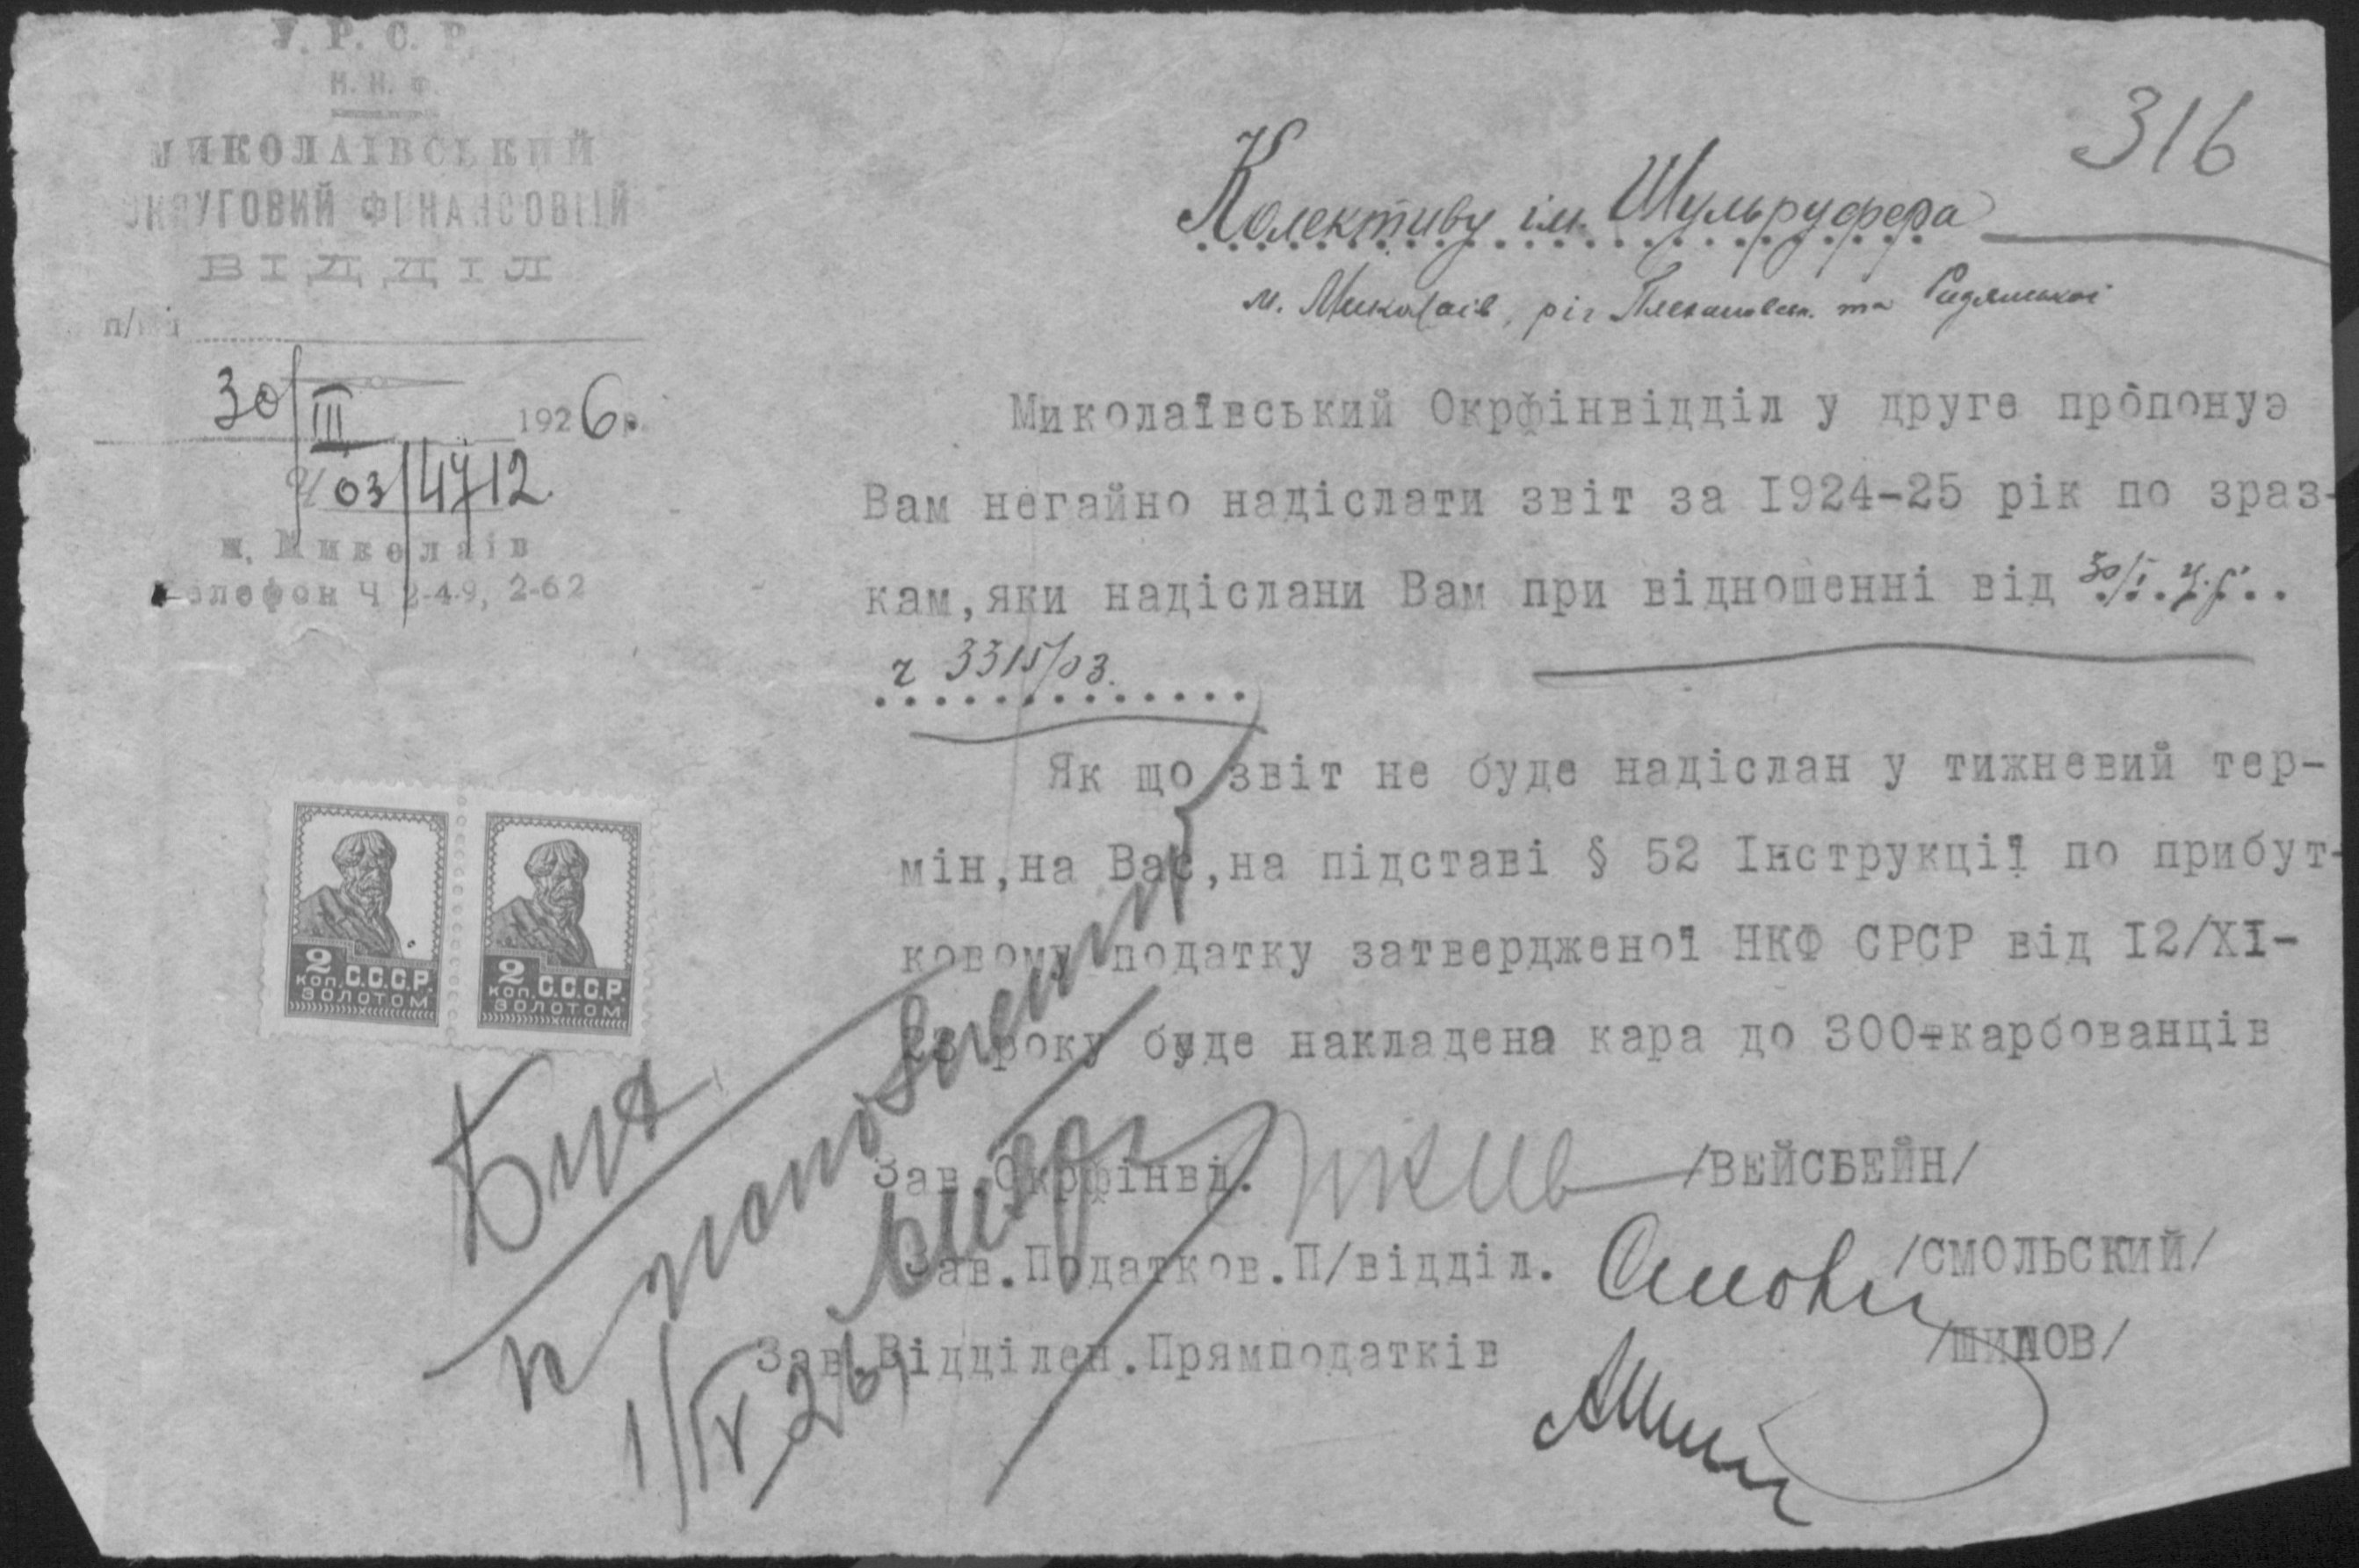 У. Р. С. Р.
Н. К. Ф.
МИКОЛАІВСЬКИЙ
ОКРУГОВИЙ ФІНАНСОВИЙ
ВІДДІЛ
п/від
30/III 1926 р.
Ч 03/4712
м. Миколаів
Телефон Ч 2-49, 2-62
316
Колективу ім. Шульруфера
м. Миколаів, ріг та Радянської
Миколаївський Окрфінвідділ у друге пропонуэ
Вам негайно надіслати звіт за I924-25 рік по зраз-
кам,яки надіслани Вам при відношенні від 30/I. ц.р.
ч 3315/03.
Як що звіт не буде надіслан у тижневий тер-
мін,на Вас,на підставі § 52 Інструкції по прибут-
ковому податку затвердженої НКФ СРСР від I2/XI-
року буде накладена кара до 300-карбованців
Зав.Окрфінвід. /ВЕЙСБЕЙН/
Зав.Податков.П/відділ. /СМОЛЬСКИЙ/
Зав.Відділен.Прямподатків /ШИПОВ/
2 КОП. С.С.С.Р. ЗОЛОТОМ
2 КОП. С.С.С.Р. ЗОЛОТОМ
Бух
к исполнению
1/IV 26